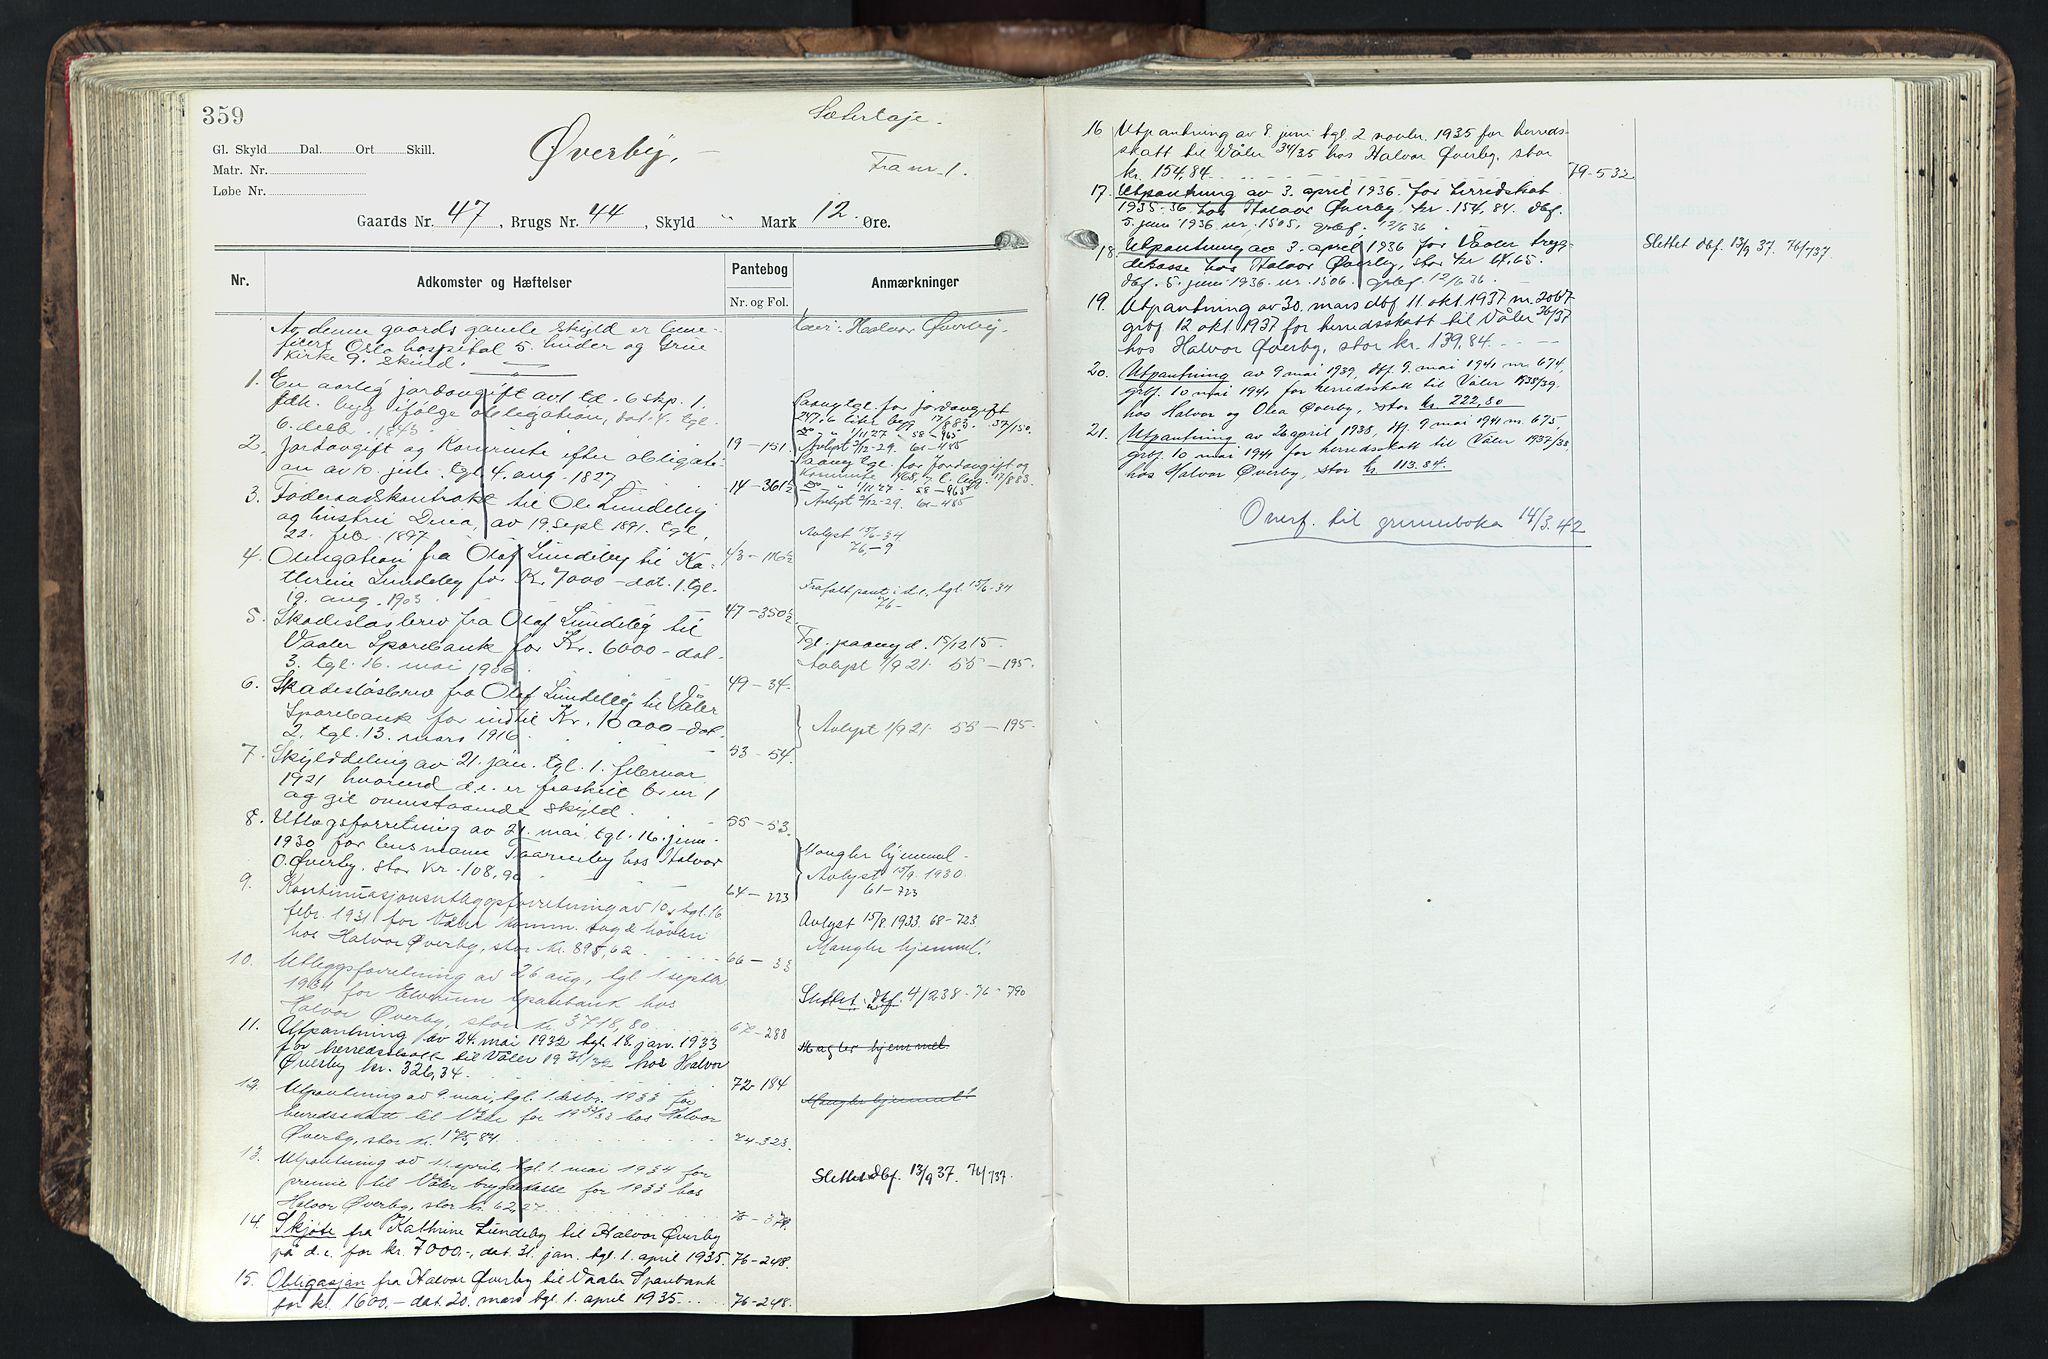 359
Gl. Skyld Dal. Ort Skill.
Matr. Nr.
Løbe Nr.
Øverby. Fra nr. 1.
Gaards Nr. 47, Brugs Nr. 44, Skyld " Mark 12. Øre.
Nr. Adkomster og Hæftelser Pantebog Anmærkninger
Nr. og Fol.
Av denne gaards gamle skyld er bene- Eier: Halvor Øverby.
ficert Oslo hospital 5 huder og Grue
kirke 9 skind.
1. En aarlig jordavgift av 1 td. 6 skp. 1.
fdk. byg ifølge obligation, dat. 4. tgl. Paanytgl. for jordavgift
6. decb. 1843. 247,6 liter byg 17/8 83. 37/150.
19-151. " " 1/11 27 - 58-965
Avlyst 2/12-29. 61-485
2. Jordavgift og Kornrente efter obligati-
on av 10. juli tgl. 4. aug. 1827 14-361½ Paanytgl. for jordavgift og
Kornrente 1468,7 l. byg. 17/8 83.
" " 1/11 27 - 58-965
Avlyst 2/12-29. 61-485
3. Føderaadskontrakt til Ole Lundeby
og hustru Dina, av 19. sept 1891. tgl.
22. febr. 1897. 43-116½ Avlyst 15/6-34
76-9
4. Obligation fra Olaf Lundeby til Ka-
thrine Lundeby for Kr. 7000- dat. 1. tgl.
19. aug. 1903. 47-350½ Frafalt pant i d.e. tgl. 15/6-34
76-
5. Skadesløsbrev fra Olaf Lundeby til
Vaaler Sparebank for Kr. 6000- dat. Tgl. paany d. 15/12 15.
3. tgl. 16. mai 1906. 49-34. Avlyst 1/9 21. 55-195.
6. Skadesløsbrev fra Olaf Lundeby til Våler
Sparebank for indtil Kr. 10000- dat. Avlyst 1/9 21. 55-195.
2. tgl. 13. mars 1916. 53-54.
7. Skylddeling av 21. jan. tgl. 1. februar
1921 hvorved d.e. er fraskilt br. nr 1
og git ovenstaaende skyld. 55-53.
8. Utlægsforretning av 21. mai, tgl. 16. juni
1930 for lensmann Taarneby hos Halvor Mangler hjemmel.
O. Øverby, stor kr. 108,90 64-223 Avlyst 15/9. 1930.
61-723
9. Kontinuasjonsutleggsforretning av 10, tgl. 16
febr. 1931 for Våler komm. sag & høvleri Avlyst 15/8. 1933 68-723
hos Halvor Øverby, stor kr. 895,62 66-33 Mangler hjemmel.
10. Utleggsforretning av 26 aug, tgl 1. septbr
1931 for Elverum Sparebank hos Slettet dbf. 4/2 38 - 76-790
Halvor Øverby, stor kr. 3718,80 67-288
11. Utpantning av 24. mai 1932 tgl. 18. jan. 1933 Mangler hjemmel.
for herredsskatt til Våler 1931/32 hos Halvor
Øverby kr. 326,34. 72-184
12. Utpantning av 9 mai, tgl. 1. desbr. 1933 for Mangler hjemmel
herredsskatt til Våler for 1932/33 hos Halvor
Øverby, stor kr. 175,84. 74-323.
13. Utpantning av 11. april, tgl. 1. mai 1934 for
premie til Våler trygdekasse for 1933 hos Slettet dbf. 13/9 37. 76/737.
Halvor Øverby, stor kr. 62,27.
14. Skjøte fra Kathrine Lundeby til Halvor Øverby
på d.e. for kr. 7000.-, dat. 31. jan. tgl. 1. april 1935. 76-248.
15. Obligasjon fra Halvor Øverby til Vaaler Sparebank
for kr. 1600.- dat. 20. mars tgl. 1. april 1935. 76-248.
16 Utpantning av 8. juni tgl. 2 novbr. 1935 for herreds-
skatt til Våler 34/35 hos Halvor Øverby, stor
kr. 154,84. 79-532
17. Utpantning av 3. april 1936 for herredskat
1935-36 hos Halvor Øverby, kr. 154,84. dbf.
5. juni 1936 nr. 1505, grbf. 12/6 36
18. Utpantning av 3. april 1936 for Våler tryg- Slettet dbf. 13/9 37. 76/737.
dekasse hos Halvor Øverby, stor kr 64,65.
dbf. 5. juni 1936 nr. 1506. grbf. 12/6 36.
19. Utpantning av 30. mars dbf 11. okt 1937 nr. 2067
grbf 12 okt 1937 for herredsskatt til Våler 36/37
hos Halvor Øverby, stor kr. 139,84.
20. Utpantning av 9 mai 1939, dbf. 9. mai 1941 nr. 674,
grbf. 10 mai 1941 for herredsskatt til Våler 1938/39.
hos Halvor og Olea Øverby, stor kr. 222,80
21. Utpantning av 26 april 1938, dbf. 9 mai 1941 nr. 675,
grbf. 10 mai 1941 for herredsskatt til Våler 1937/38,
hos Halvor Øverby, stor kr. 113.84.
Overf. til grunnboka 14/3.42